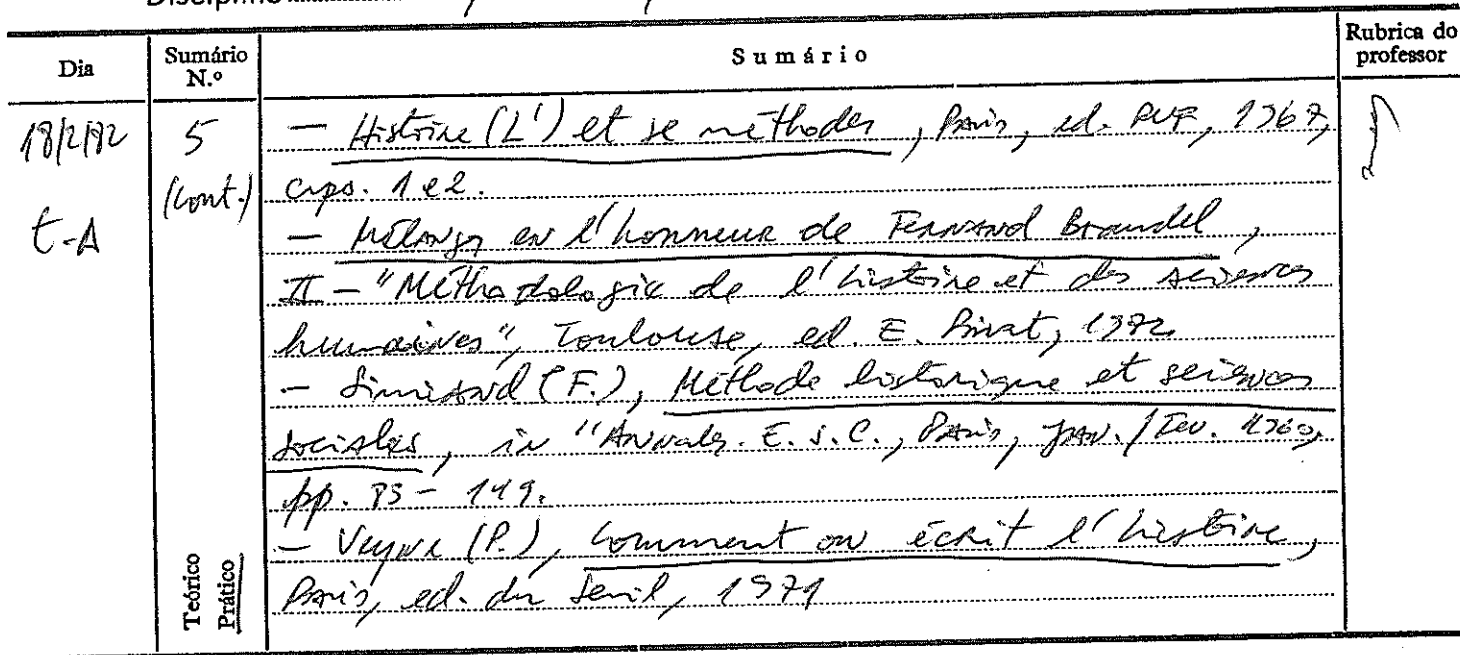 Dia
Sumário N.º
Sumário
Rubrica do professor
18/2/82
5
(cont.)
t-A
— Histoire (L') et se méthodes, Paris, ed. PUF, 1967,
caps. 1 e 2.
— Mélanges en l'honneur de Fernand Braudel,
II — "Méthodologie de l'histoire et des sciences
humaines", Toulouse, ed. E. Privat, 1972
— Simiand (F.), Méthode historique et sciences
sociales, in "Annales. E.S.C., Paris, Jan./Fev. 1960,
pp. 83 - 119.
— Veyne (P.), Comment on écrit l'histoire,
Paris, ed. du Seuil, 1971
Teórico
Prático